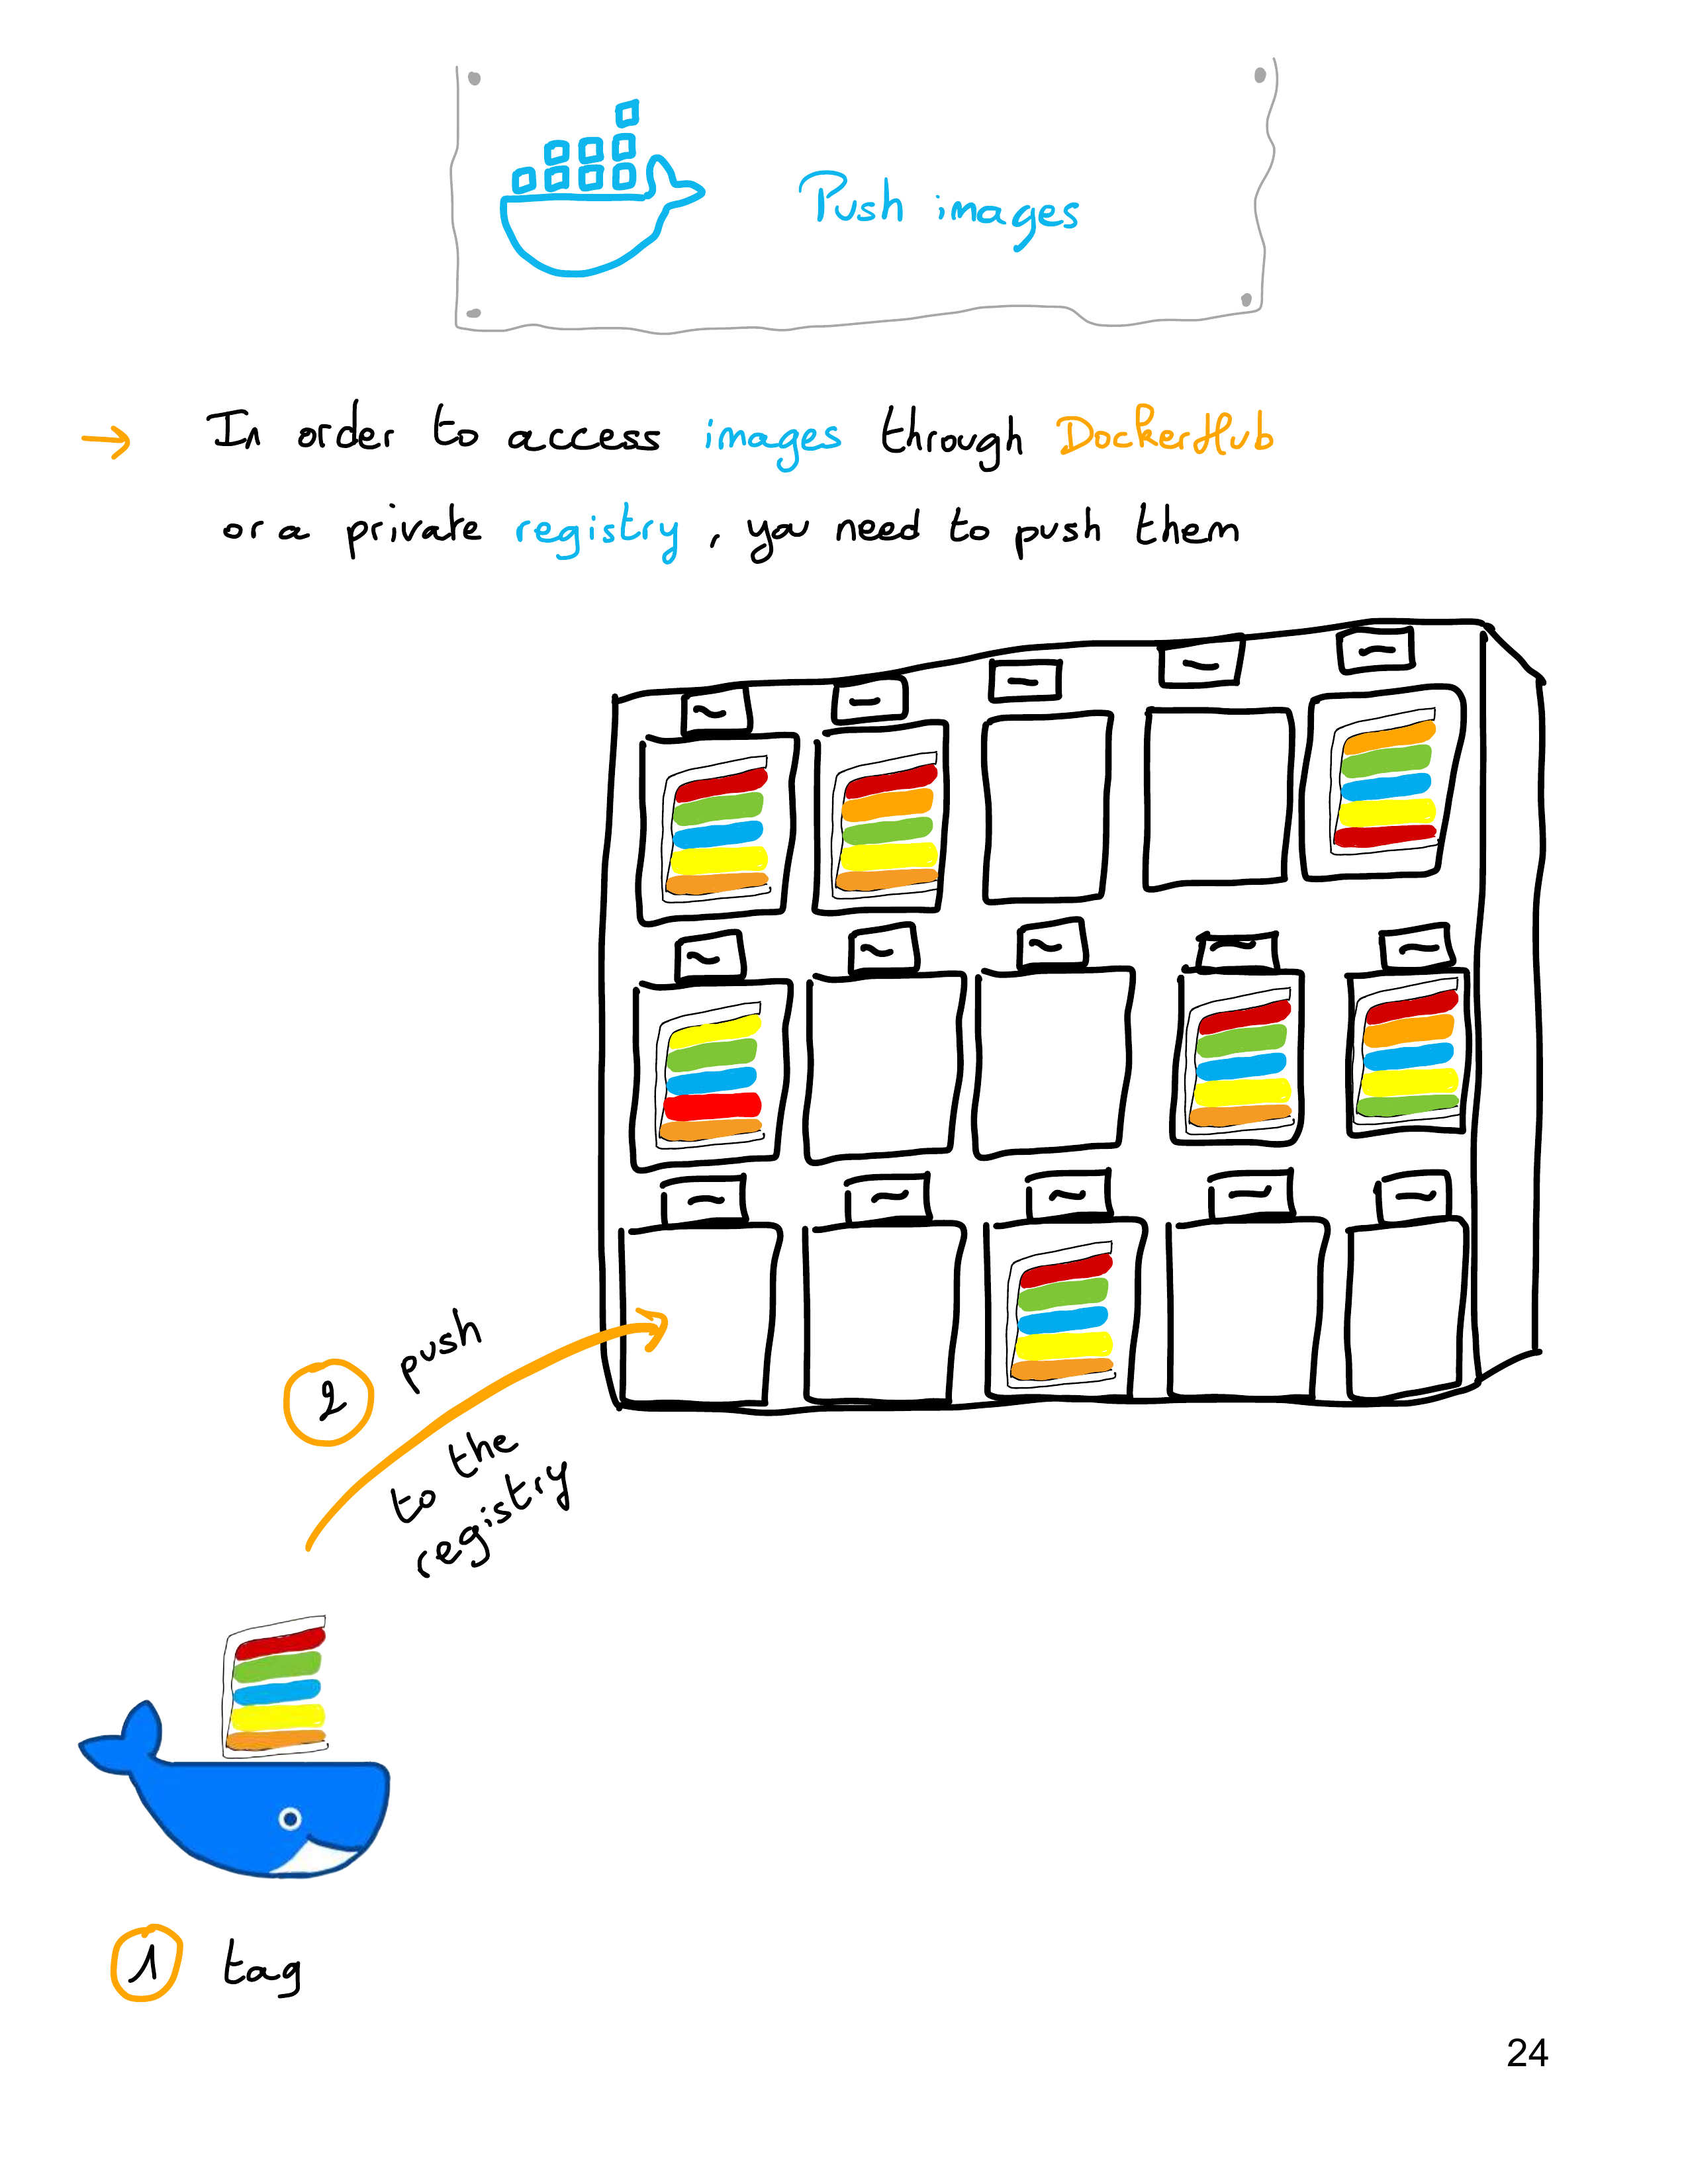 Push images
→ In order to access images through DockerHub
or a private registry, you need to push them
2 push
to the
registry
1 tag
24